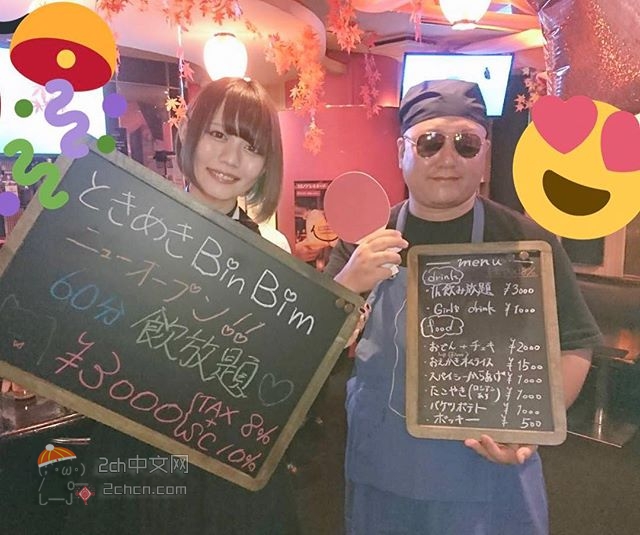 ときめきBinBim
ニューオープン!!
60分 飲放題♡
¥3000 {TAX 8%
+
SC 10%
menu
drink
・1h飲み放題 ¥3000
・Girls drink ¥1000
food
・おでん+チェキ ¥2000
・おえかきオムライス ¥1500
・スパイシーからあげ ¥1000
・たこやき(ロシアンあり) ¥1000
・バケツポテト ¥1000
ポッキー ¥500
2ch中文网
2chcn.com